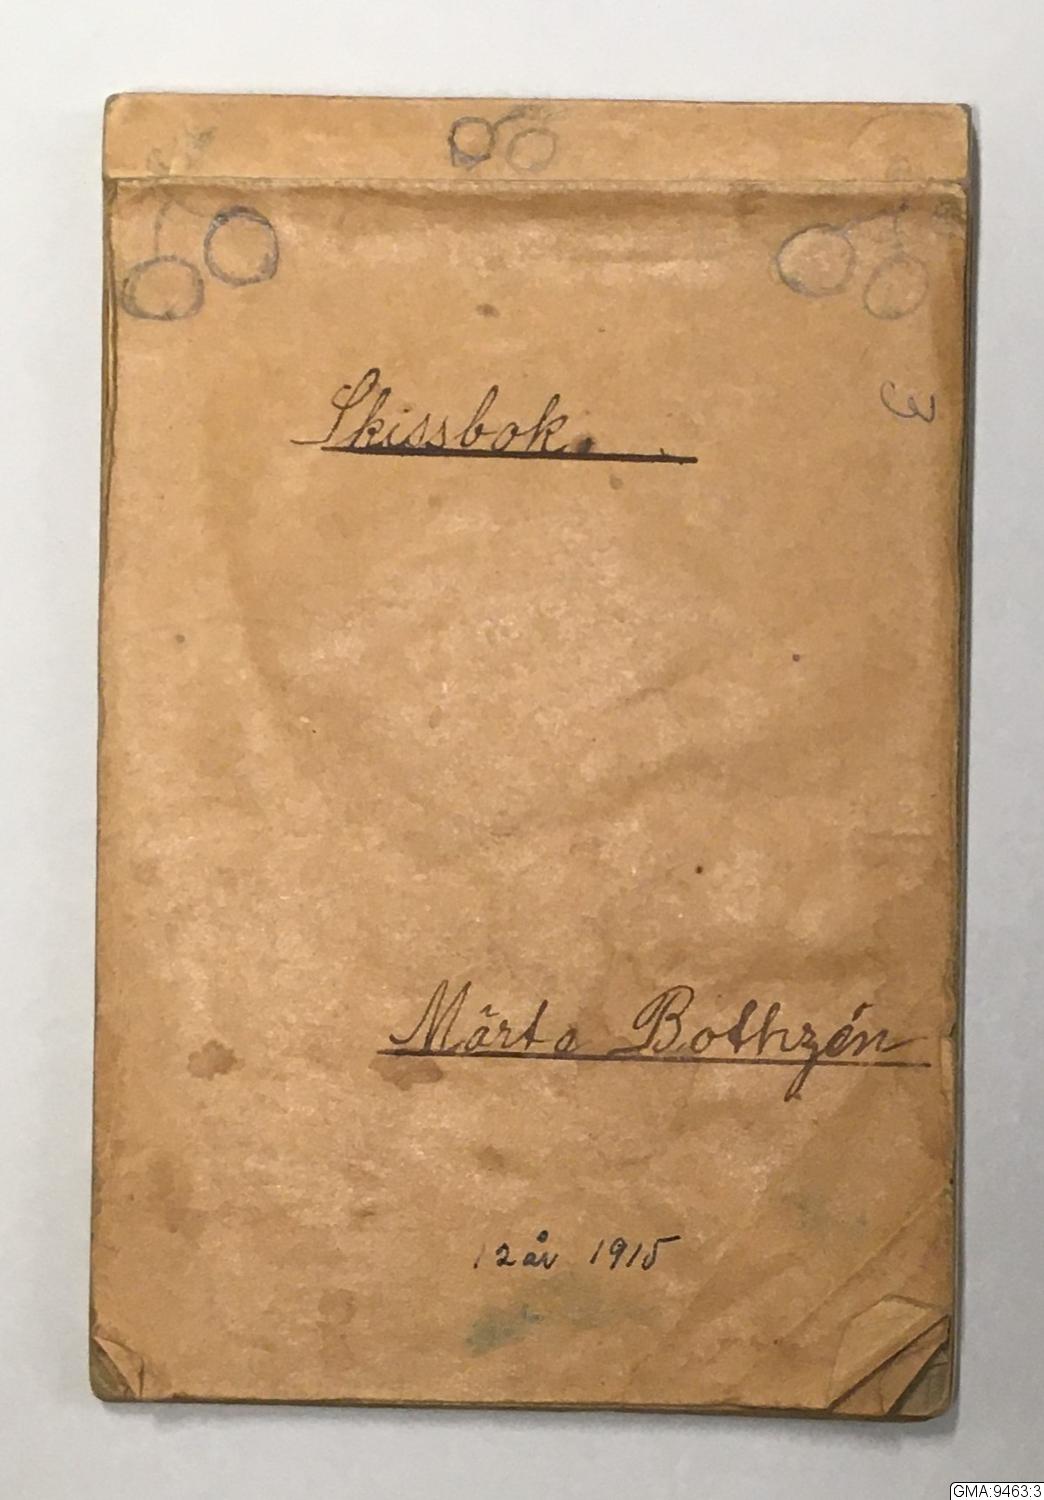 3
Skissbok.
Märta Bothzén
12 år 1915
GMA:9463:3